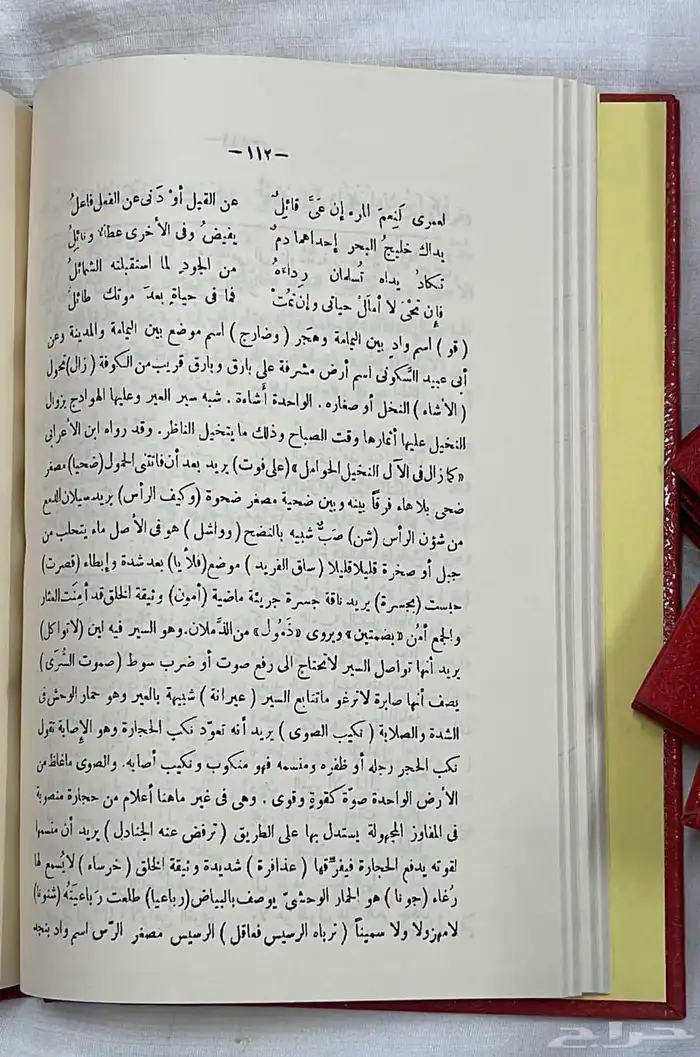 –١١٢–
لعمرى لَنِعمَ المرء إن عَىَّ قائِلٌ عن القيل أوْ دَنى عن الفعل فاعلُ
يداك خليجُ البحر إحداهما دمٌ يفيضُ وفى الأخرى عطاء ونائِلُ
تكادُ يداه تُسلمان رِداءَهُ من الجودِ لما استقبلته الشمائلُ
فإن تحىَ لا أملَلْ حياتى وإن تَمُتْ فما فى حياةٍ بعدَ موتك طائلُ
( قو ) اسم وادٍ بين اليمامة وهَجَر ( وضارج ) اسم موضع بين اليمامة والمدينة وعن
أبى عبيد السَّكونى اسم أرض مشرفة على بارق وبارق قريب من الكوفة ( زال ) تحول
( الأشاء ) النخل أو صغاره . الواحدة أَشاءة . شبه سير العير وعليها الهوادج بزوال
النخيل عليها أثمارها وقت الصباح وذلك ما يتخيل الناظر . وقد رواه ابن الأعرابى
«كما زال فى الآل النخيل الحوامل» (على فوت) يريد بعد أن فاتتنى الحمول (ضحيا) مصغر
ضحى بلا هاء فرقاً بينه وبين ضحية مصغر ضحوة (وكيف الرأس) يريد سيلان الدمع
من شؤن الرأس (شن) صَبٌّ شبيه بالنضح ( وواشل ) هو فى الأصل ماء يتحلب من
جبل أو صخرة قليلا قليلا ( ساق الفريد ) موضع (فلأيا) بعد شدة وإبطاء (قصرت)
حبست (بجسرة) يريد ناقة جسرة جريئة ماضية (أمون) وثيقة الخلق قد أمِنَت العثار
والجمع أمُن «بضمتين» ويروى «ذَمُول» من الذَّملان. وهو السير فيه لين (لا تواكل)
يريد أنها تواصل السير لا تحتاج الى رفع صوت أو ضرب سوط (صموت السُّرَى)
يصف أنها صابرة لا ترغو ما تتابع السير ( عيرانة ) شبيهة بالعير وهو حمار الوحش فى
الشدة والصلابة ( نكيب الصوى ) يريد أنه تعوّد نكب الحجارة وهو الإصابة تقول
نكب الحجر رجله أو ظفره ومنسمه فهو منكوب ونكيب أصابه. والصوى ما غلظ من
الأرض الواحدة صوّة كقوة وقوى . وهى فى غير ماهنا أعلام من حجارة منصوبة
فى المفاوز المجهولة يستدل بها على الطريق ( ترفض عنه الجنادل ) يريد أن منسمها
لقوته يدفع الحجارة فيفرّقها ( عذافرة ) شديدة وثيقة الخلق ( خرساء ) لا يُسمع لها
رُغاء (جونا) هو الحمار الوحشىّ يوصف بالبياض (رباعيا) طلعت رَباعيَتُه (شنونا)
لا مهزولا ولا سميناً ( ترباه الرسيس فعاقل ) الرسيس مصغر الرّس اسم واد بنجد
حراج